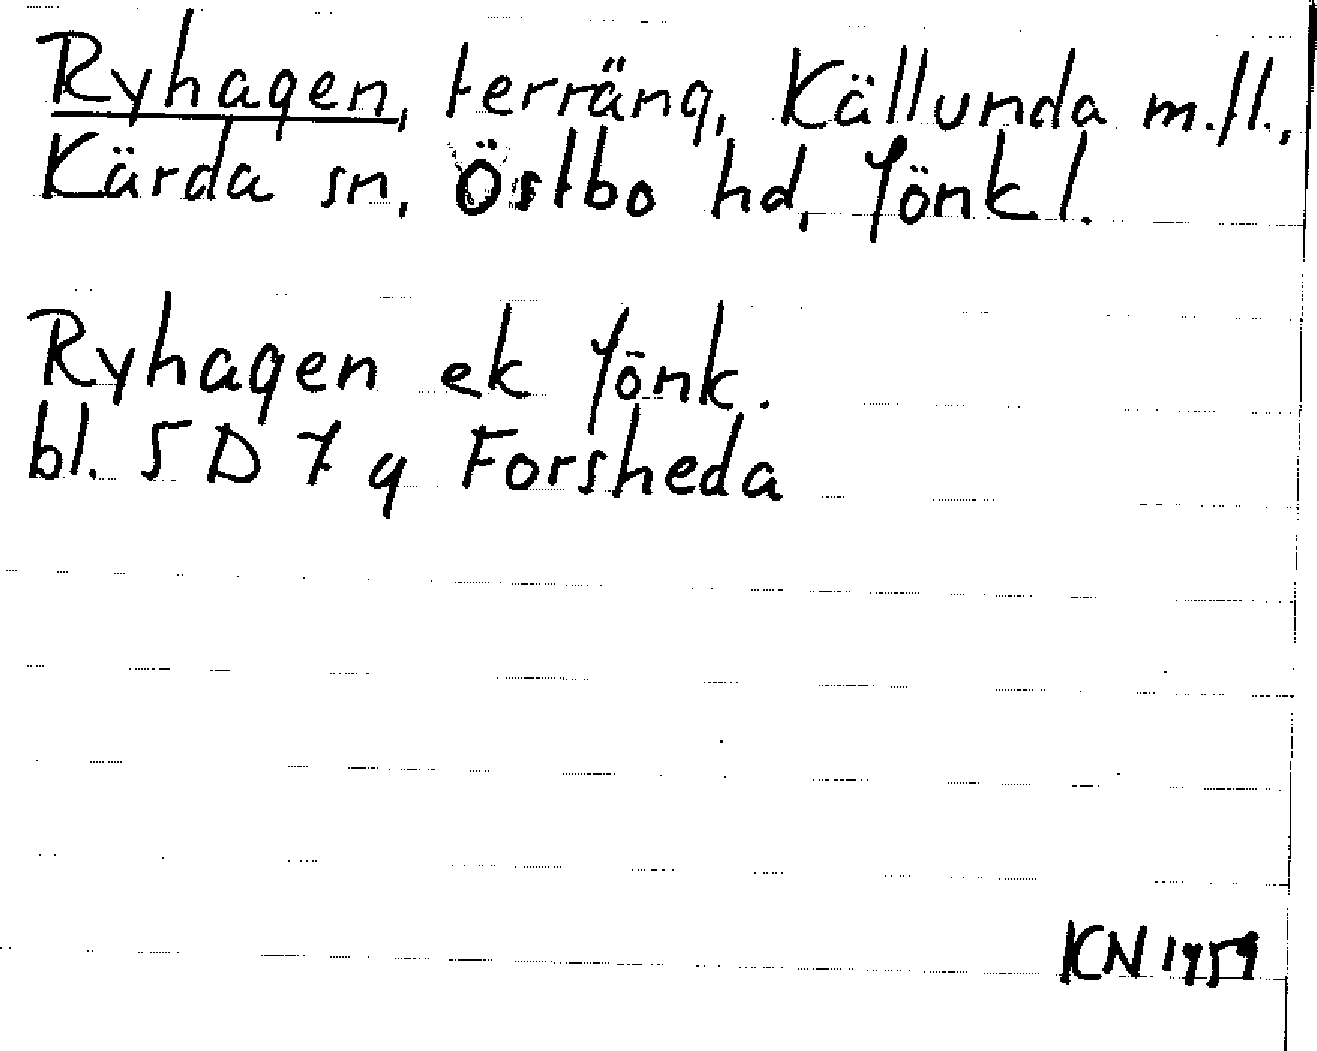 Ryhagen, terräng, Källunda m.fl.,
Kärda sn, Östbo hd, Jönk l.
Ryhagen ek Jönk.
bl. 5 D 7 g Forsheda
KN 1959